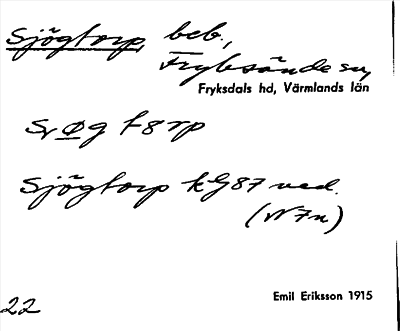 Sjögtorp, beb.,
Fryksände sn,
Fryksdals hd, Värmlands län
Sjögtorp kG87 ved.
(N7n)
Emil Eriksson 1915
22